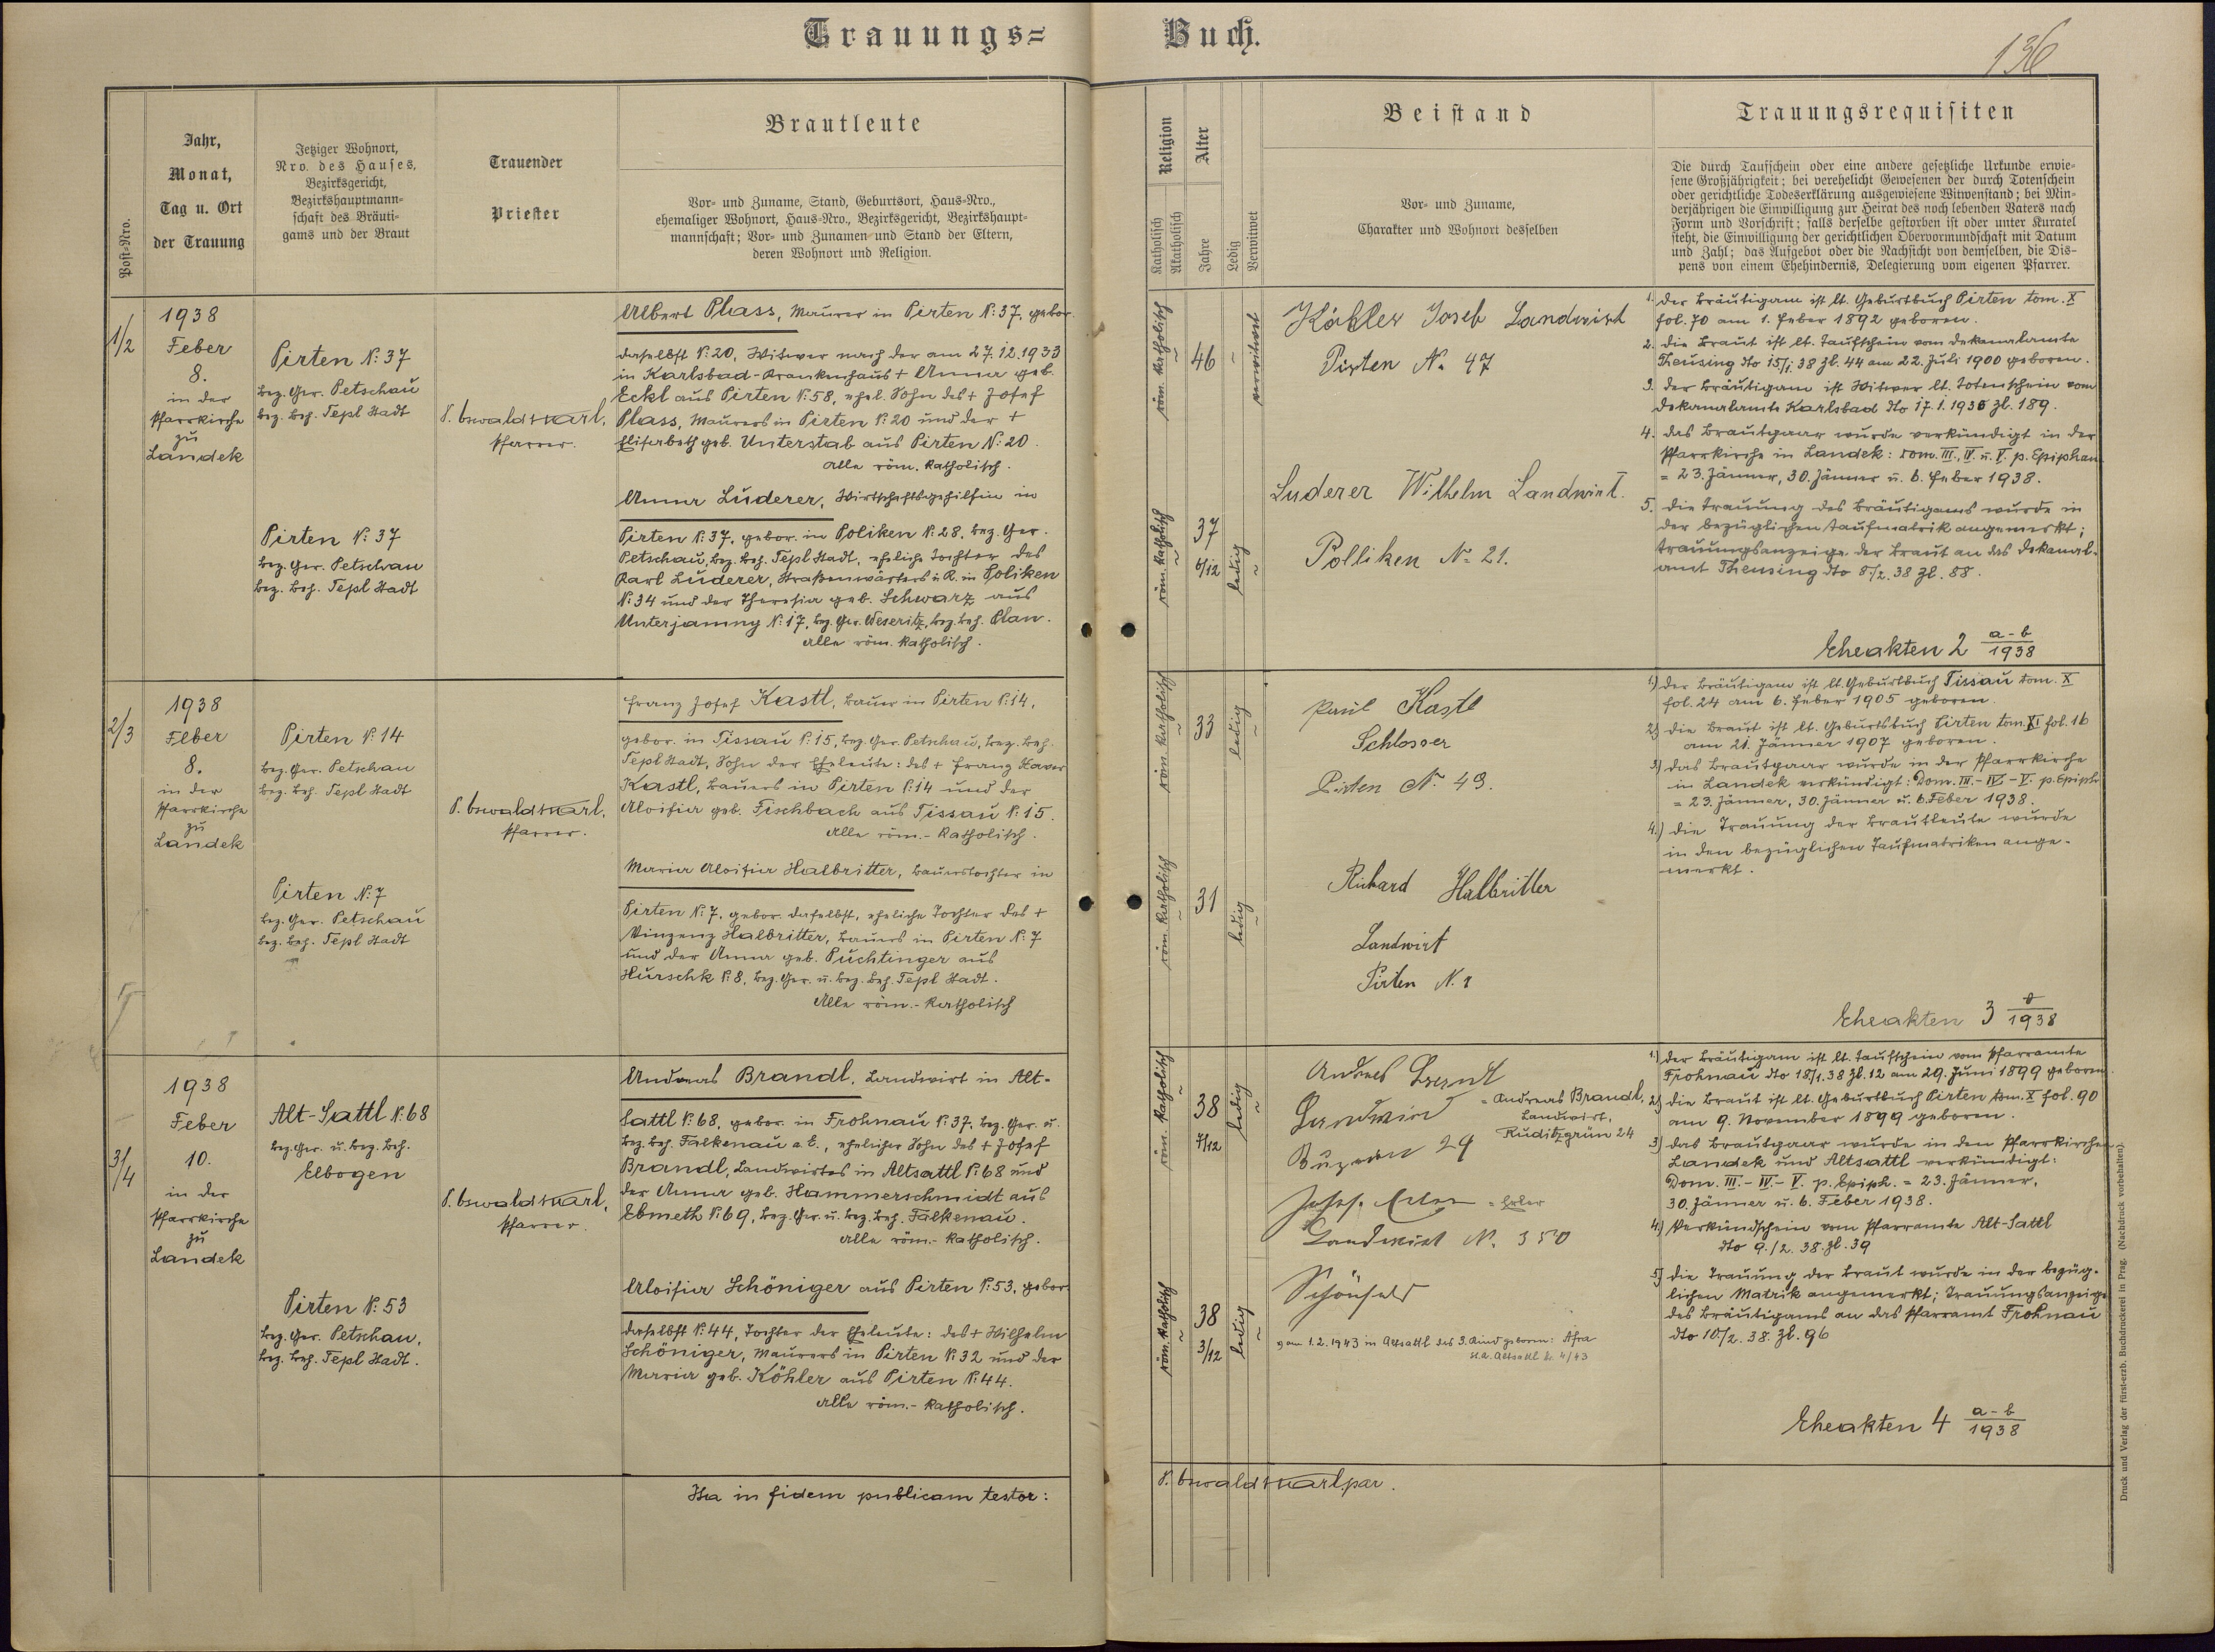 Trauungs= Buch.
136
Post=Nro.
Jahr,
Monat,
Tag u. Ort
der Trauung
Jetziger Wohnort,
Nro. des Hauses,
Bezirksgericht,
Bezirkshauptmann=
schaft des Bräuti=
gams und der Braut
Trauender
Priester
Brautleute
Vor= und Zuname, Stand, Geburtsort, Haus=Nro.,
ehemaliger Wohnort, Haus=Nro., Bezirksgericht, Bezirkshaupt=
mannschaft; Vor= und Zunamen und Stand der Eltern,
deren Wohnort und Religion.
Religion
Katholisch
Akatholisch
Alter
Jahre
Ledig
Verwitwet
Beistand
Vor= und Zuname,
Charakter und Wohnort desselben
Trauungsrequisiten
Die durch Taufschein oder eine andere gesetzliche Urkunde erwie=
sene Großjährigkeit; bei verehelicht Gewesenen der durch Totenschein
oder gerichtliche Todeserklärung ausgewiesene Witwenstand; bei Min=
derjährigen die Einwilligung zur Heirat des noch lebenden Vaters nach
Form und Vorschrift; falls derselbe gestorben ist oder unter Kuratel
steht, die Einwilligung der gerichtlichen Obervormundschaft mit Datum
und Zahl; das Aufgebot oder die Nachsicht von demselben, die Dis=
pens von einem Ehehindernis, Delegierung vom eigenen Pfarrer.
1/2
1938
Feber
8.
in der
Pfarrkirche
zu
Landek
Pirten N: 37
bez. Ger. Petschau
bez. beh. Tepl Stadt
Pirten N: 37
bez. Ger. Petschau
bez. beh. Tepl Stadt
P. Oswald Karl,
Pfarrer.
Albert Plass, Maurer in Pirten N: 37, gebor.
daselbst N: 20, Witwer nach der am 27.12.1933
in Karlsbad-Krankenhaus + Anna geb.
Eckl aus Pirten N: 58, ehel. Sohn des + Josef
Plass, Maurers in Pirten N: 20 und der +
Elisabeth geb. Unterstab aus Pirten N: 20.
Alle röm. katholisch.
Anna Luderer, Wirtschaftsgehilfin in
Pirten N: 37, gebor. in Poliken N: 28, bez. Ger.
Petschau, bez. beh. Tepl Stadt, eheliche Tochter des
Karl Luderer, Straßenwärters i. R. in Poliken
N: 34 und der Theresia geb. Schwarz aus
Unterjamny N: 17, bez. Ger. Weseritz, bez. beh. Plan.
Alle röm. katholisch.
röm. katholisch
46
verwitwet
röm. katholisch
37
6/12
ledig
Köhler Josef Landwirt
Pirten No 47
Luderer Wilhelm Landwirt.
Polliken No 21.
1. Der Bräutigam ist lt. Geburtbuch Pirten tom. X
fol. 70 am 1. Feber 1892 geboren.
2. Die Braut ist lt. Taufschein vom Dekanalamte
Theusing dto 15./1. 38 Zl. 44 am 22. Juli 1900 geboren.
3. Der Bräutigam ist Witwer lt. Totenschein vom
Dekanalamte Karlsbad dto 17.1.1936 Zl. 189.
4. Das Brautpaar wurde verkündigt in der
Pfarrkirche in Landek: Dom. III., IV. u. V. p. Epiphan.
= 23. Jänner, 30. Jänner u. 6. Feber 1938.
5. Die Trauung des Bräutigams wurde in
der bezüglichen Taufmatrik angemerkt;
Trauungsanzeige der Braut an das Dekanal-
amt Theusing dto 8./2. 38 Zl. 88.
Eheakten 2 a-b/1938
2/3
1938
Feber
8.
in der
Pfarrkirche
zu
Landek
Pirten N: 14
bez. Ger. Petschau
bez. beh. Tepl Stadt
Pirten N: 7
bez. Ger. Petschau
bez. beh. Tepl Stadt
P. Oswald Karl,
Pfarrer.
Franz Josef Kastl, Bauer in Pirten N: 14,
gebor. in Tissau N: 15, bez. Ger. Petschau, bez. beh.
Tepl Stadt, Sohn der Eheleute: des + Franz Xaver
Kastl, Bauers in Pirten N: 14 und der
Aloisia geb. Fischbach aus Tissau N: 15.
Alle röm.-katholisch.
Maria Aloisia Halbritter, Bauerstochter in
Pirten N: 7, gebor. daselbst, eheliche Tochter des +
Vinzenz Halbritter, Bauers in Pirten N: 7
und der Anna geb. Puchtinger aus
Hurschk N: 8, bez. Ger. u. bez. beh. Tepl Stadt.
Alle röm.-katholisch
röm. katholisch
33
ledig
röm. katholisch
31
ledig
Paul Kastl
Schlosser
Pirten No 49.
Richard Halbritter
Landwirt
Pirten N. 7
1.) Der Bräutigam ist lt. Geburtbuch Tissau tom. X
fol. 24 am 6. Feber 1905 geboren.
2.) Die Braut ist lt. Geburtsbuch Pirten tom. XI fol. 16
am 21. Jänner 1907 geboren.
3.) Das Brautpaar wurde in der Pfarrkirche
in Landek verkündigt: Dom. III.-IV.-V. p. Epiph.
= 23. Jänner, 30. Jänner u. 6. Feber 1938.
4.) Die Trauung der Brautleute wurde
in den bezüglichen Taufmatriken ange-
merkt.
Eheakten 3 /1938
3/4
1938
Feber
10.
in der
Pfarrkirche
zu
Landek
Alt-Sattl N: 68
bez. Ger. u. bez. beh.
Elbogen
Pirten N: 53
bez. Ger. Petschau,
bez. beh. Tepl Stadt.
P. Oswald Karl,
Pfarrer.
Andreas Brandl, Landwirt in Alt-
sattl N: 68, gebor. in Frohnau N: 37, bez. Ger. u.
bez. beh. Falkenau a. E., ehelicher Sohn des + Josef
Brandl, Landwirtes in Altsattl N: 68 und
der Anna geb. Hammerschmidt aus
Ebmeth N: 69, bez. Ger. u. bez. beh. Falkenau.
Alle röm.-katholisch.
Aloisia Schöniger aus Pirten N: 53, gebor.
daselbst N: 44, Tochter der Eheleute: des + Wilhelm
Schöniger, Maurers in Pirten N: 32 und der
Maria geb. Köhler aus Pirten N: 44.
Alle röm.-katholisch.
röm. katholisch
38
7/12
ledig
röm. katholisch
38
3/12
ledig
= Andreas Brandl,
Landwirt,
Ruditzgrün 24
= Erler
Landwirt N.
am 1.2.1943 in Altsattl das 3. Kind geboren: Afra
St.A. Altsattl Nr. 4/43
1.) Der Bräutigam ist lt. Taufschein vom Pfarramte
Frohnau dto 18./1. 38 Zl. 12 am 29. Juni 1899 geboren.
2.) Die Braut ist lt. Geburtbuch Pirten tom. X fol. 90
am 9. November 1899 geboren.
3.) Das Brautpaar wurde in den Pfarrkirchen
Landek und Altsattl verkündigt:
Dom. III.-IV.-V. p. Epiph. = 23. Jänner,
30. Jänner u. 6. Feber 1938.
4.) Verkündschein vom Pfarramte Alt-Sattl
dto 9./2. 38. Zl. 39
5.) Die Trauung der Braut wurde in der bezüg-
lichen Matrik angemerkt; Trauungsanzeige
des Bräutigams an das Pfarramt Frohnau
dto 10./2. 38. Zl. 96
Eheakten 4 a-b/1938
Ita in fidem publicam testor:
P. Oswald Karl, par.
Druck und Verlag der fürst-erzb. Buchdruckerei in Prag. (Nachdruck vorbehalten).